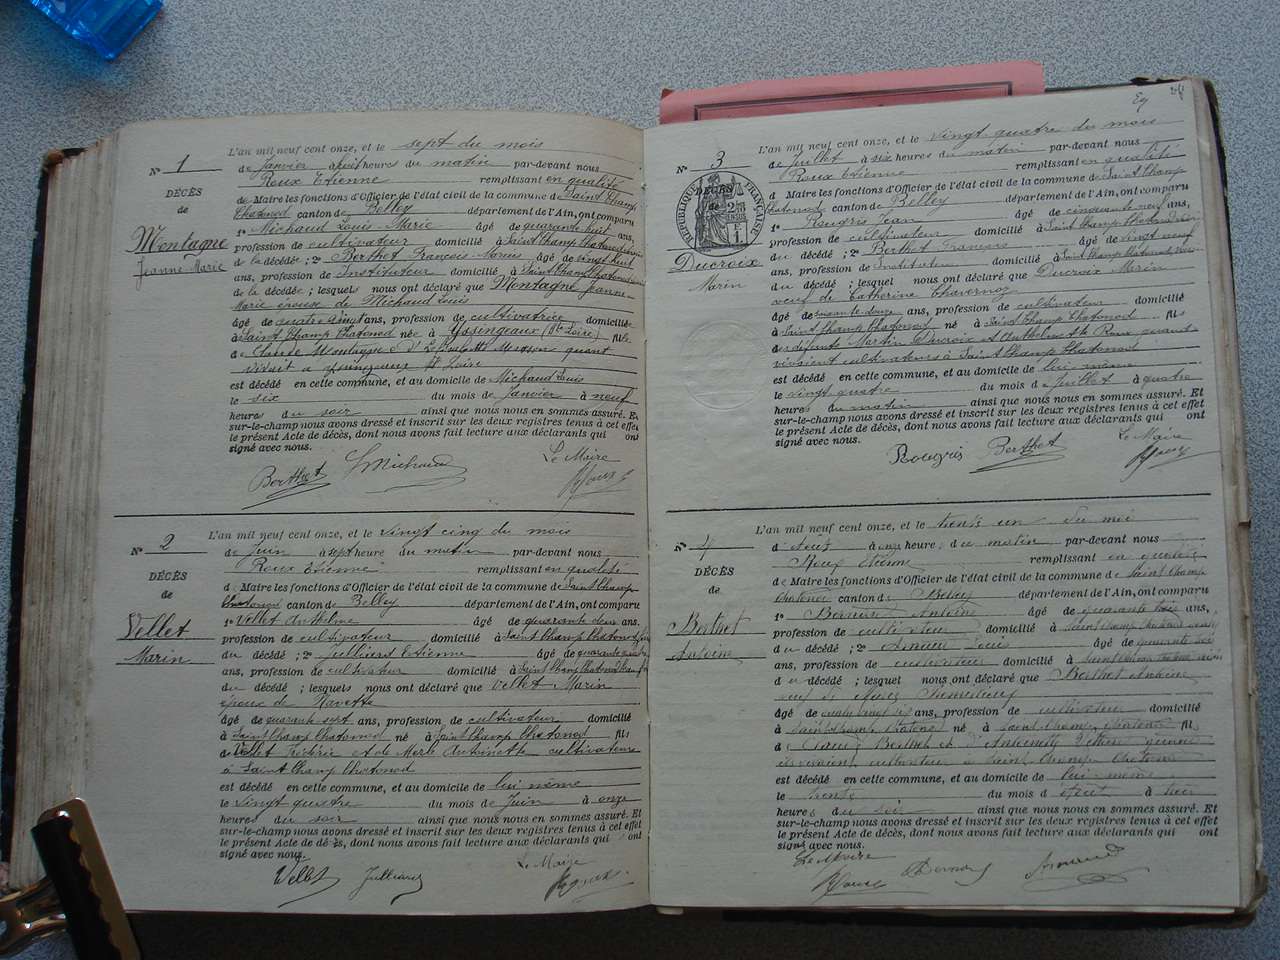 N° 1
DÉCÈS
de
Montagne
Jeanne Marie
L'an mil neuf cent onze, et le sept du mois
de Janvier à huit heures du matin par-devant nous
Roux Etienne remplissant en qualité
de Maire les fonctions d'Officier de l'état civil de la commune de Saint Champ
Chatonod canton de Belley département de l'Ain, ont comparu
1° Michaud Louis Marie âgé de quarante huit ans,
profession de cultivateur domicilié à Saint Champ Chatonod
de la décédée ; 2° Berthet François Marius âgé de vingt huit
ans, profession de Instituteur domicilié à Saint Champ Chatonod
de la décédée ; lesquels nous ont déclaré que Montagne Jeanne
Marie épouse de Michaud Louis
âgé de quatre vingt ans, profession de cultivatrice domiciliée
à Saint Champ Chatonod née à Yssingeaux (Hte Loire) fille
de Claude Montagne et d' quant
vivait à Yssingeaux Hte Loire
est décédé en cette commune, et au domicile de Michaud Louis
le six du mois de Janvier à neuf
heures du soir ainsi que nous nous en sommes assuré. Et
sur-le-champ nous avons dressé et inscrit sur les deux registres tenus à cet effet
le présent Acte de décès, dont nous avons fait lecture aux déclarants qui ont
signé avec nous.
Le Maire
Berthet Michaud Roux
N° 2
DÉCÈS
de
Vellet
Marin
L'an mil neuf cent onze, et le vingt cinq du mois
de Juin à sept heure du matin par-devant nous
Roux Etienne remplissant en qualité
de Maire les fonctions d'Officier de l'état civil de la commune de Saint Champ
Chatonod canton de Belley département de l'Ain, ont comparu
1° Vellet Anthelme âgé de quarante deux ans,
profession de cultivateur domicilié à Saint Champ Chatonod
du décédé ; 2° Julliard Etienne âgé de quarante
ans, profession de cultivateur domicilié à Saint Champ Chatonod
du décédé ; lesquels nous ont déclaré que Vellet Marin
époux de Navette
âgé de quarante sept ans, profession de cultivateur domicilié
à Saint Champ Chatonod né à Saint Champ Chatonod fils
de Vellet Frédéric et de Merle Antoinette cultivateurs
à Saint Champ Chatonod
est décédé en cette commune, et au domicile de lui même
le vingt quatre du mois de Juin à onze
heures du soir ainsi que nous nous en sommes assuré. Et
sur-le-champ nous avons dressé et inscrit sur les deux registres tenus à cet effet
le présent Acte de décès, dont nous avons fait lecture aux déclarants qui ont
signé avec nous.
Le Maire
Vellet Julliard Roux
N° 3
RÉPUBLIQUE FRANÇAISE
2
DÉCÈS
de
Ducroix
Marin
L'an mil neuf cent onze, et le vingt quatre du mois
de Juillet à six heures du matin par-devant nous
Roux Etienne remplissant en qualité
de Maire les fonctions d'Officier de l'état civil de la commune de Saint Champ
Chatonod canton de Belley département de l'Ain, ont comparu
1° Rougris Jean âgé de cinquante neuf ans,
profession de cultivateur domicilié à Saint Champ Chatonod
du décédé ; 2° Berthet François âgé de vingt neuf
ans, profession de Instituteur domicilié à Saint Champ Chatonod
du décédé ; lesquels nous ont déclaré que Ducroix Marin
veuf de Catherine Chavernoz
âgé de soixante douze ans, profession de cultivateur domicilié
à Saint Champ Chatonod né à Saint Champ Chatonod fils
des défunts Martin Ducroix et Anthelmette Roux quant
vivaient cultivateurs à Saint Champ Chatonod
est décédé en cette commune, et au domicile de lui même
le vingt quatre du mois de Juillet à quatre
heures du matin ainsi que nous nous en sommes assuré. Et
sur-le-champ nous avons dressé et inscrit sur les deux registres tenus à cet effet
le présent Acte de décès, dont nous avons fait lecture aux déclarants qui ont
signé avec nous.
Le Maire
Rougris Berthet Roux
N° 4
DÉCÈS
de
Berthet
Antoine
L'an mil neuf cent onze, et le trente un du moi
d'Août à onze heures du matin par-devant nous
Roux Etienne remplissant en qualité
de Maire les fonctions d'Officier de l'état civil de la commune de Saint Champ
Chatonod canton de Belley département de l'Ain, ont comparu
1° Antoine âgé de quarante trois ans,
profession de cultivateur domicilié à Saint Champ Chatonod
du décédé ; 2° Louis âgé de quarante
ans, profession de cultivateur domicilié à Saint Champ Chatonod
du décédé ; lesquels nous ont déclaré que Berthet Antoine
veuf de
âgé de ans, profession de cultivateur domicilié
à Saint Champ Chatonod né à Saint Champ Chatonod fils
de Berthet et d'Antoinette
cultivateur à Saint Champ Chatonod
est décédé en cette commune, et au domicile de lui même
le trente du mois d'Août à
heures du soir ainsi que nous nous en sommes assuré. Et
sur-le-champ nous avons dressé et inscrit sur les deux registres tenus à cet effet
le présent Acte de décès, dont nous avons fait lecture aux déclarants qui ont
signé avec nous.
Le Maire
Roux